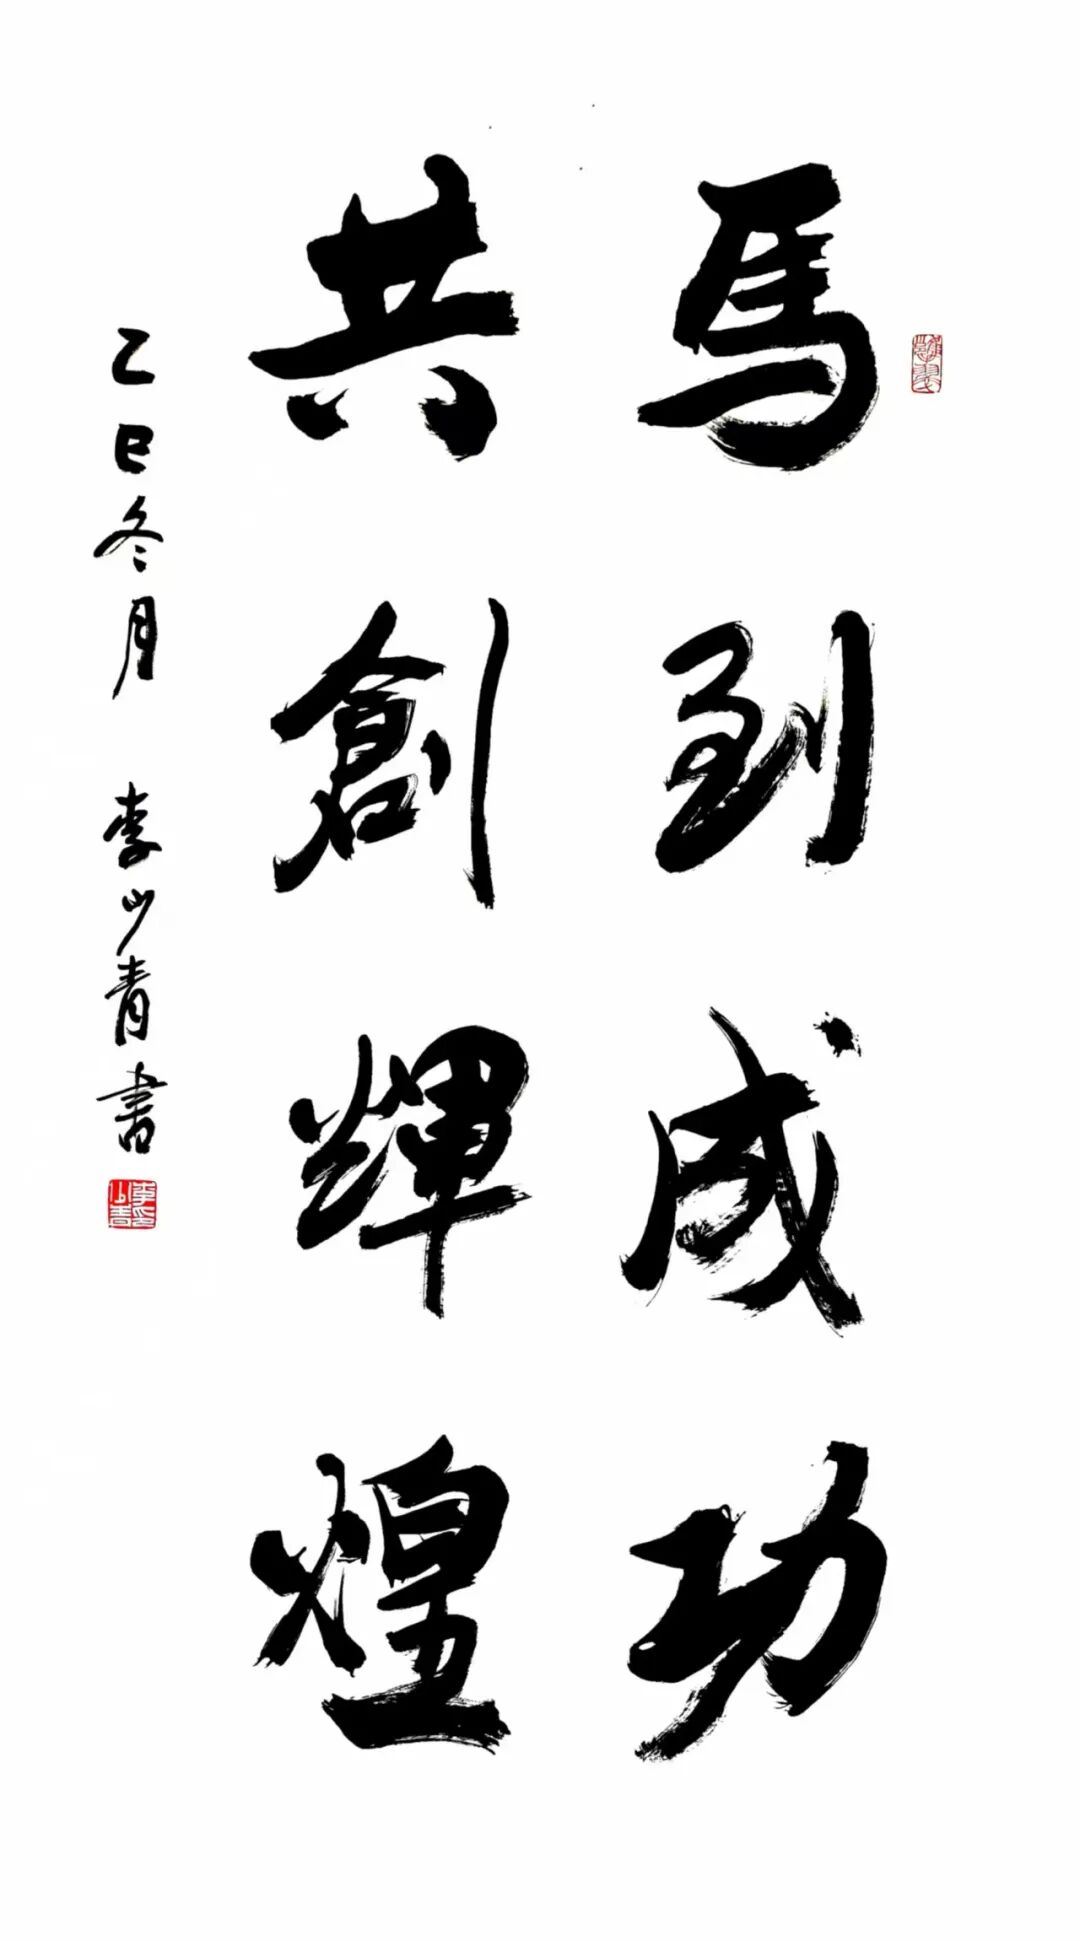 馬到成功
共創輝煌
乙巳冬月 李山青書